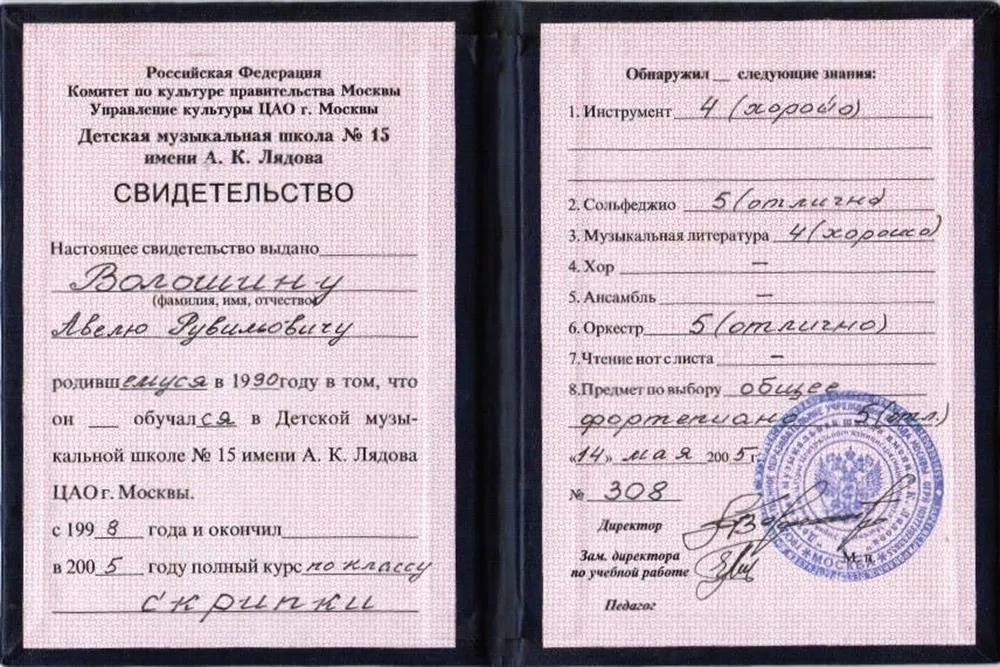 Российская Федерация
Комитет по культуре правительства Москвы
Управление культуры ЦАО г. Москвы
Детская музыкальная школа № 15
имени А. К. Лядова
СВИДЕТЕЛЬСТВО
Настоящее свидетельство выдано
Волошину
(фамилия, имя, отчество)
Авелю Рувимовичу
родившемуся в 1990 году в том, что
он обучался в Детской музы-
кальной школе № 15 имени А. К. Лядова
ЦАО г. Москвы.
с 1998 года и окончил
в 2005 году полный курс по классу
скрипки
Обнаружил следующие знания:
1. Инструмент 4 (хорошо)
2. Сольфеджио 5 (отлично)
3. Музыкальная литература 4 (хорошо)
4. Хор —
5. Ансамбль —
6. Оркестр 5 (отлично)
7. Чтение нот с листа —
8. Предмет по выбору общее
фортепиано 5 (отл.)
«14» мая 2005 г.
№ 308
Директор
Зам. директора
по учебной работе
М. п.
Педагог
МОСКВА